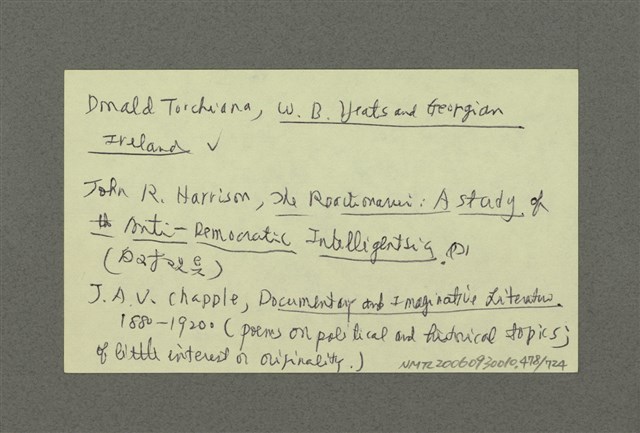 Donald Torchiana, W. B. Yeats and Georgian
Ireland ✓
John R. Harrison, The Reactionaries: A study of
th Anti-Democratic Intelligentsia.
J. A. V. Chapple, Documentary and Imaginative Literature.
1880-1920 (poems on political and historical topics;
of little interest or originality.)
NMTL20060930010.478/724